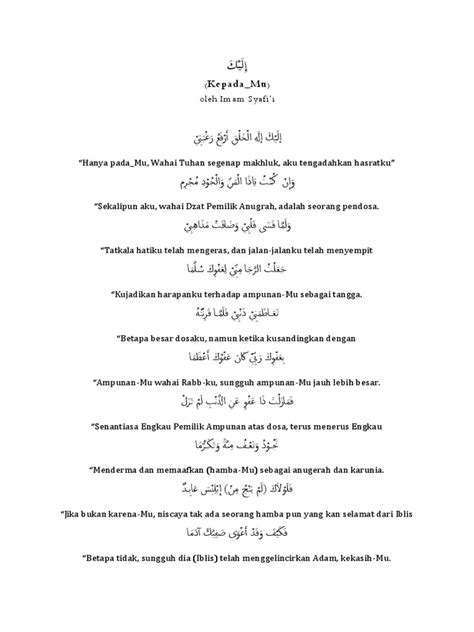 إِلَيْكَ
(Kepada_Mu)
oleh Imam Syafi'i
إِلَيْكَ إِلٰهَ الْخَلْقِ أَرْفَعُ رَغْبَتِيْ
“Hanya pada_Mu, Wahai Tuhan segenap makhluk, aku tengadahkan hasratku”
وَإِنْ كُنْتُ يَاذَا الْمَنِّ وَالْجُوْدِ مُجْرِم
“Sekalipun aku, wahai Dzat Pemilik Anugrah, adalah seorang pendosa.
وَلَمَّا قَسَى قَلْبِيْ وَضَاقَتْ مَذَاهِبِيْ
“Tatkala hatiku telah mengeras, dan jalan-jalanku telah menyempit
جَعَلْتُ الرَّجَا مِنِّيْ لِعَفْوِكَ سُلَّمَا
“Kujadikan harapanku terhadap ampunan-Mu sebagai tangga.
تَعَاظَمَنِيْ ذَنْبِيْ فَلَمَّا قَرَنْتُهُ
“Betapa besar dosaku, namun ketika kusandingkan dengan
بِعَفْوِكَ رَبِّيْ كَانَ عَفْوُكَ أَعْظَمَا
“Ampunan-Mu wahai Rabb-ku, sungguh ampunan-Mu jauh lebih besar.
فَمَازِلْتَ ذَا عَفْوٍ عَنِ الذَّنْبِ لَمْ تَزَلْ
“Senantiasa Engkau Pemilik Ampunan atas dosa, terus menerus Engkau
تَجُوْدُ وَتَعْفُ مِنَّةً وَتَكَرُّمَا
“Menderma dan memaafkan (hamba-Mu) sebagai anugerah dan karunia.
فَلَوْلَاكَ (لَمْ يَنْجُ مِنْ) إِبْلِيْسَ عَابِدٌ
“Jika bukan karena-Mu, niscaya tak ada seorang hamba pun yang kan selamat dari Iblis
فَكَيْفَ وَقَدْ أَغْوَى صَفِيَّكَ آدَمَا
“Betapa tidak, sungguh dia (Iblis) telah menggelincirkan Adam, kekasih-Mu.